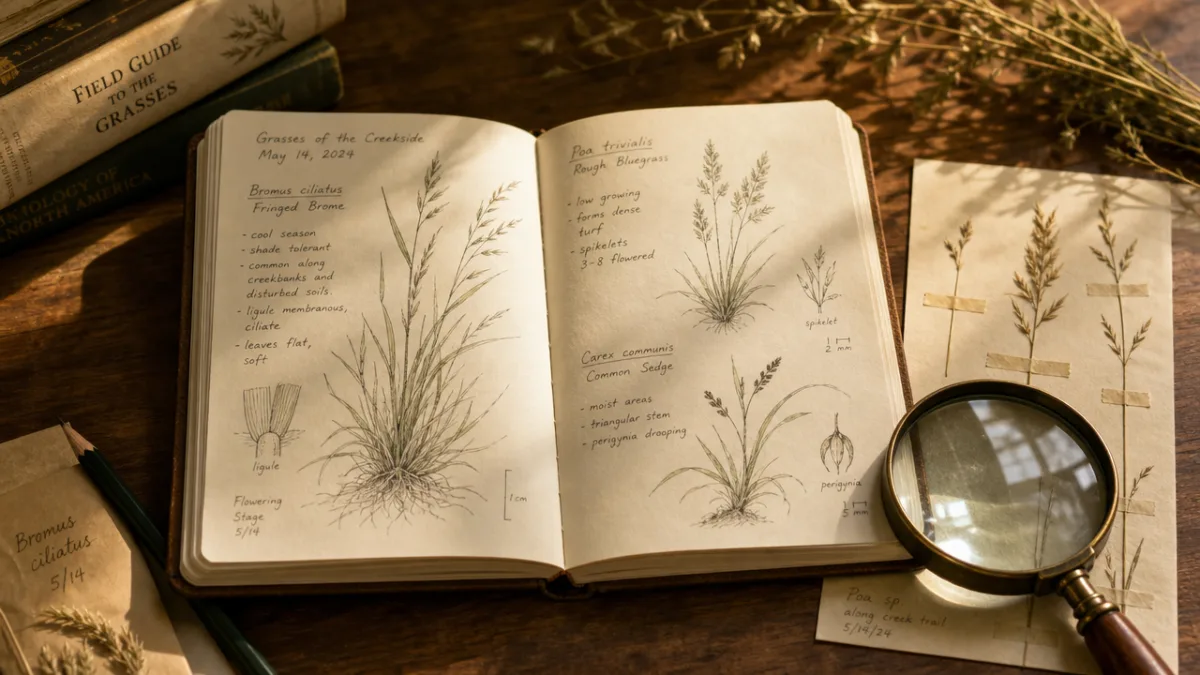 FIELD GUIDE
TO THE
GRASSES
NORTH AMERICA
Grasses of the Creekside
May 14, 2024
Bromus ciliatus
Fringed Brome
- cool season
- shade tolerant
- common along
creekbanks and
disturbed soils.
- ligule membranous,
ciliate
- leaves flat,
soft
ligule
Flowering
Stage
5/14
1 cm
Poa trivialis
Rough Bluegrass
- low growing
- forms dense
turf
- spikelets
3-8 flowered
spikelet
2 mm
Carex communis
Common Sedge
- moist areas
- triangular stem
- perigynia drooping
perigynia
5 mm
Bromus
ciliatus
5/14
Poa sp
along creek trail
5/14/24